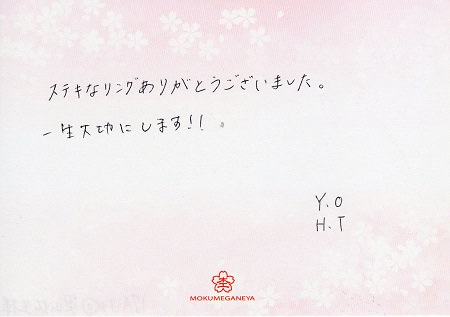 ステキなリングありがとうございました。
一生大切にします!!
Y.O
H.T
MOKUMEGANEYA